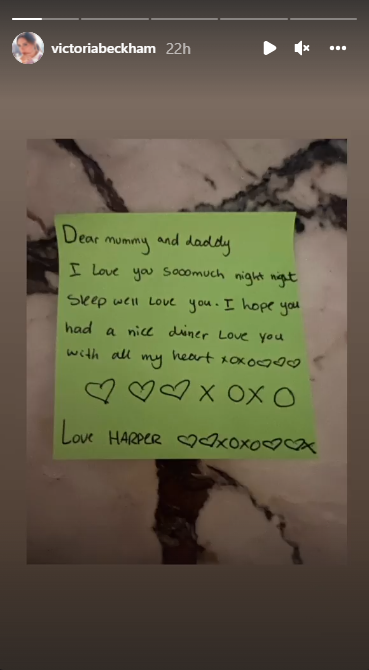 victoriabeckham 22h
Dear mummy and daddy
I Love you sooomuch night night
Sleep well Love you. I hope you
had a nice dinner Love you
with all my heart xoxo♡♡♡
♡ ♡♡ x OXO
Love HARPER ♡♡xoxo♡♡x